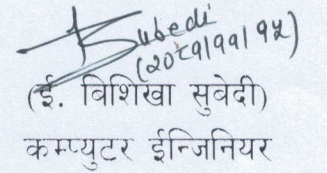 Subedi
(२०८१।११।१५)
(ई. विशिखा सुवेदी)
कम्प्युटर ईन्जिनियर